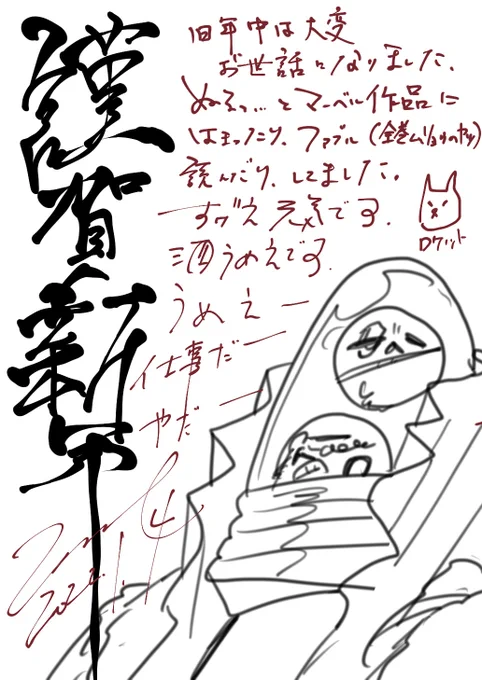 謹賀新年
旧年中は大変
お世話になりました、
ぬるっ…とマーベル作品に
はまったり、ファブル(全巻ムリョウのヤツ)
読んだり、してました。
すげえ元気です、
酒うめえです、
うめえー
仕事だー
やだー
ロケット
2022.1.4